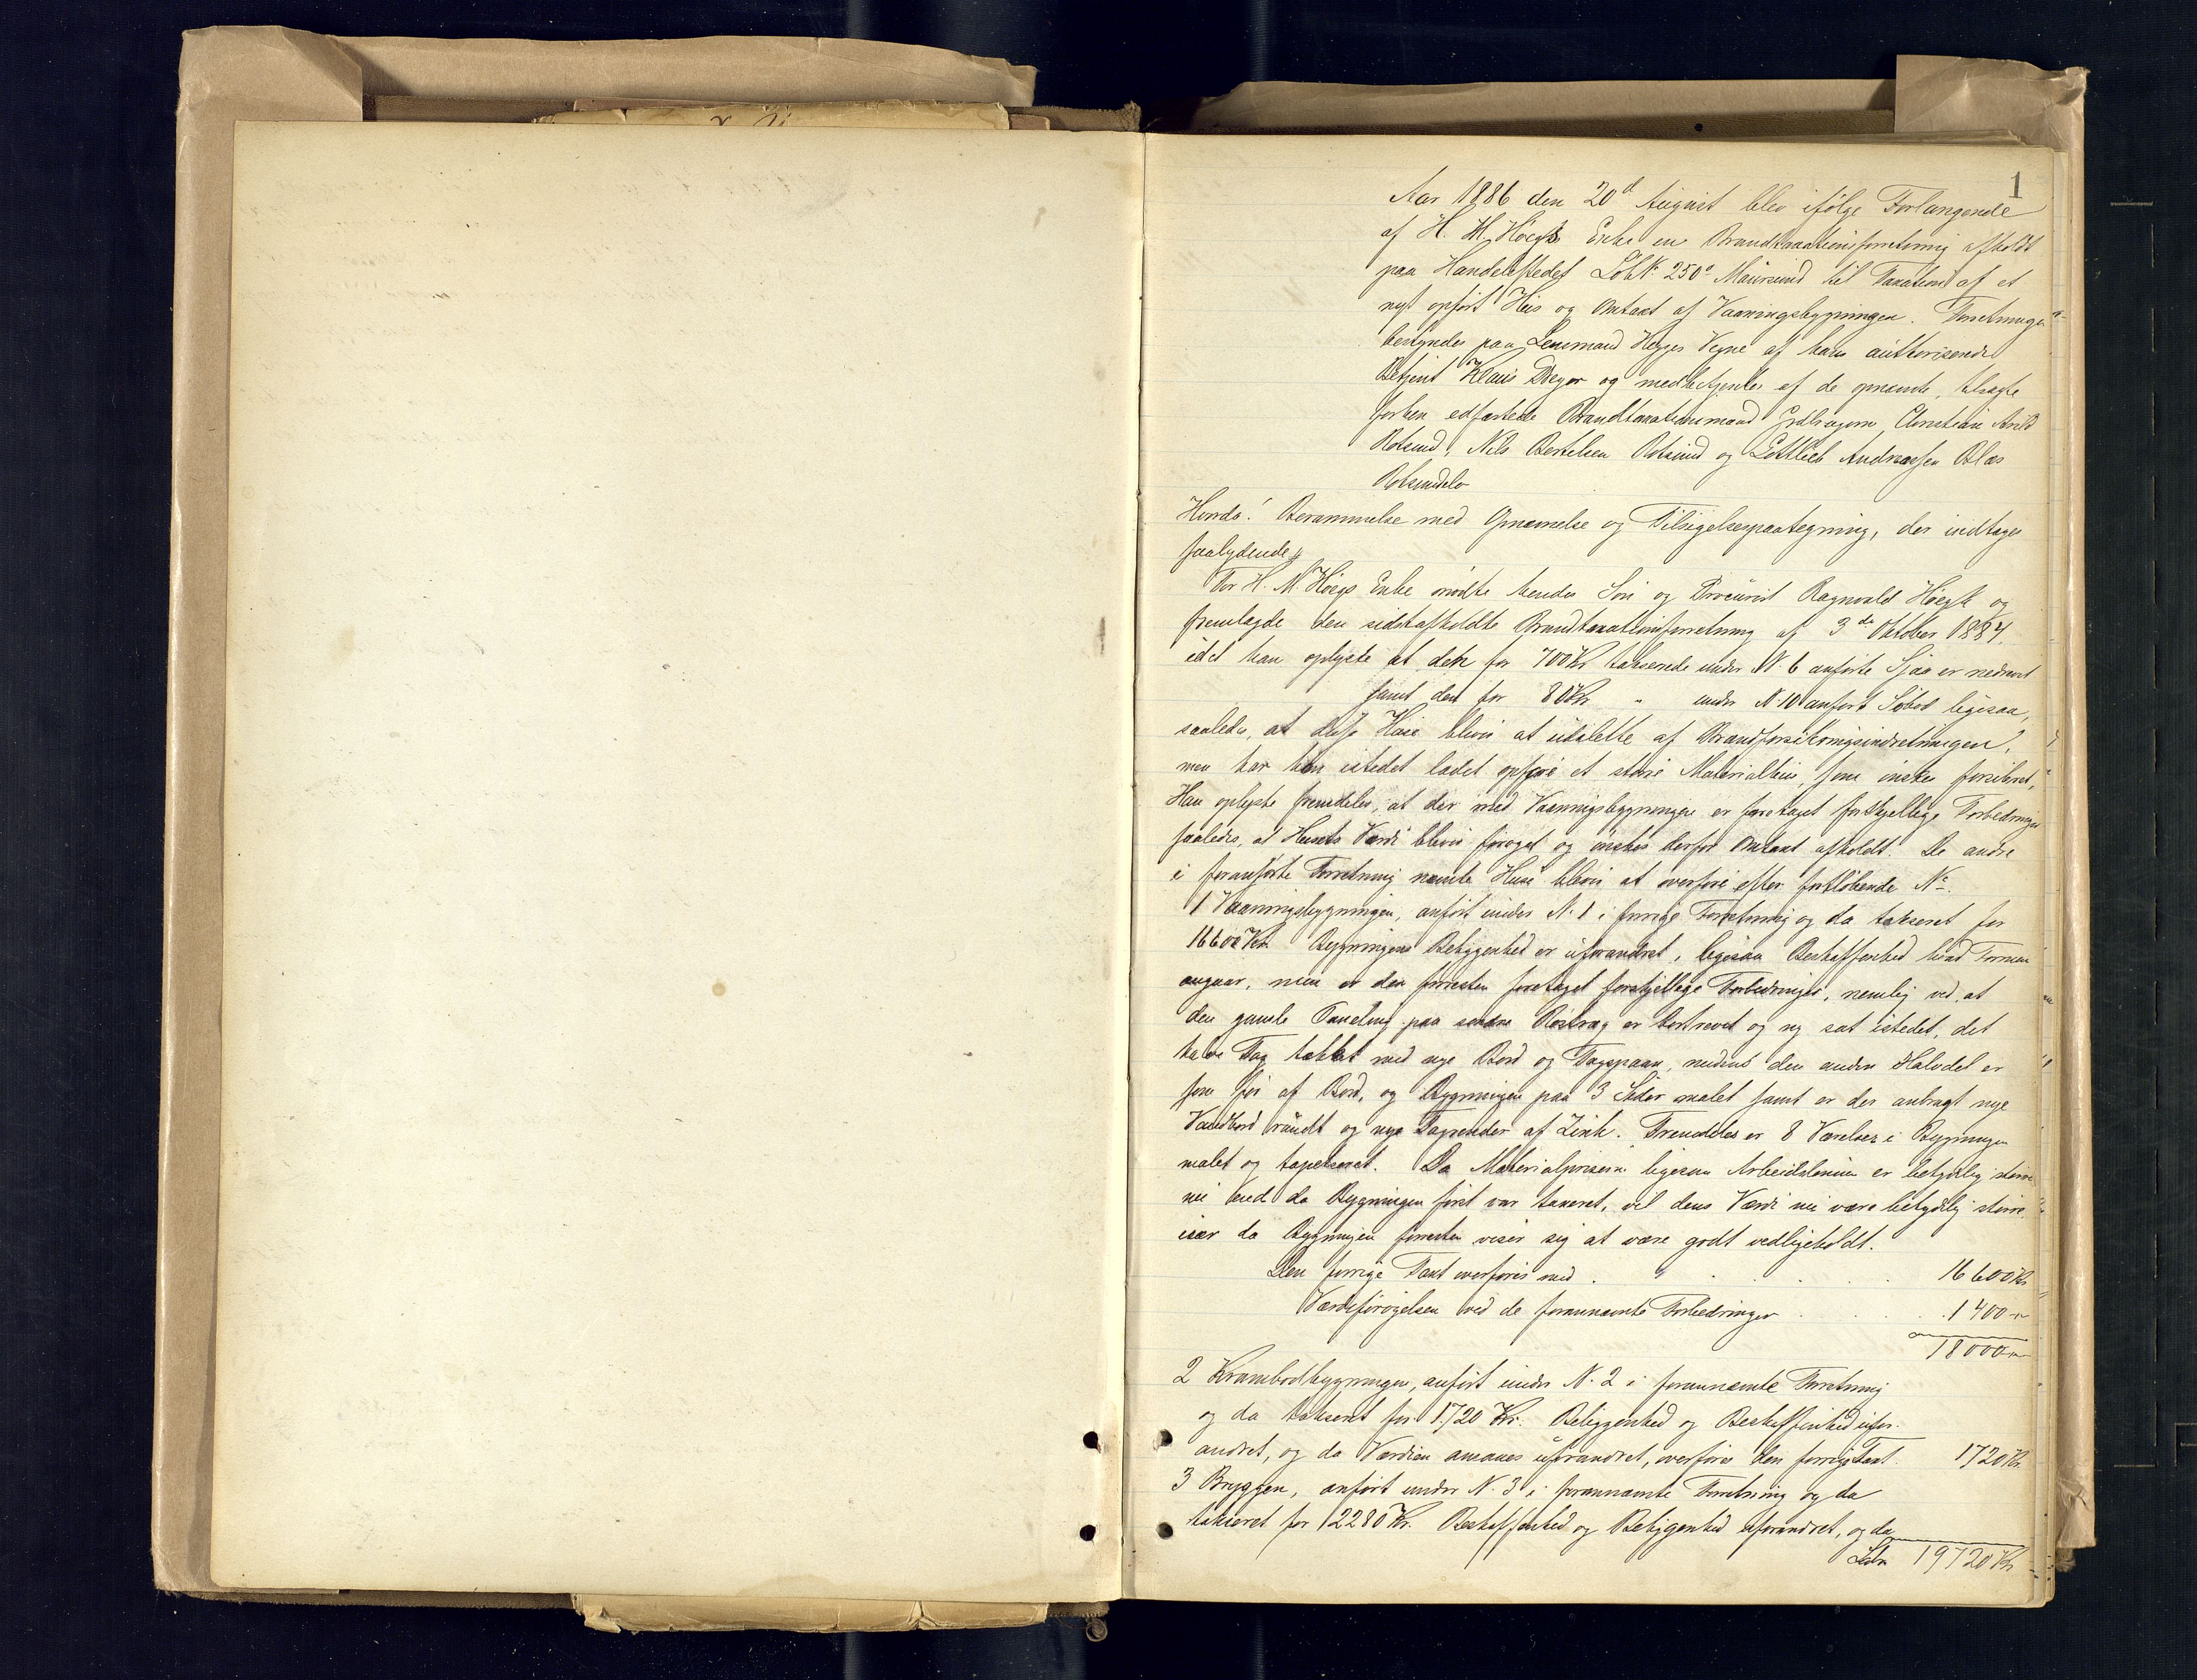 1
Aar 1886 den 20d August blev ifølge Forlangende
af H. M. Høegs Enke en Brandtaxationsforretning afholdt
paa Handelsstedet LøbN. 250a Maursund til Taxation af et
nyt opført Hus og Omtaxt af Vaaningsbygningen. Forretningen
bestyndes paa Lensmand Hegges Vegne af hans authoriserede
Betjent Klaus Dreyer og medbetjentes af de opnævnte, tilsagte
forhen edfæstede Brandtaxationsmænd Christian Arild
Rotsund, Nils Bertelsen Rotsund og Gottlieb Andreassen Blas
Rotsundelv
Hvorda! Berammelse med Opnævnelse og Tilsigelsespaategning, der indtages
saalydende
For H. M. Høegs Enke mødte hendes Søn og Procurist Ragnvald Høegh og
fremlagde den sidstafholdte Brandtaxationsforretning af 3de Oktober 1884,
idet han oplyste at den for 700 Kr takserede under N. 6 anførte Sjaa er nedrevet
samt den for 80 Kr " under N. 10 anført Søbod ligesaa,
saaledes, at disse Huse bliver at udslette af Brandforsikringsindretningen,
men har hun istedet ladet opføre et større Materialhus, som ønskes forsikret,
Han oplyste fremdeles, at der med Vaaningsbygningen er foretaget forskjellige Forbedringer
saaledes, at Husets Værdi bliver forøget og ønskes derfor Omtaxt afholdt. De andre
i foranførte Forretning nævnte Huse bliver at overføre efter fortløbende No.
1 Vaaningsbygningen, anført under N. 1 i forrige Forretning og da takseret for
16600 Kr. Bygningens Beliggenhed er uforandret, ligesaa Beskaffenhed hvad Formen
angaar, men er der forresten foretaget forskjellige Forbedringer, nemlig ved, at
den gamle Paneling paa søndre Røstvæg er bortrevet og ny sat istedet, det
halve Tag tækket med nye Bord og Tagspaan, medens den anden Halvdel er
som før af Bord, og Bygningen paa 3 Sider malet samt er der anbragt nye
Vandbord rundt og nye Tagrender af Zink. Fremdeles er 8 Værelser i Bygningen
malet og tapetseret. Da Materialpriserne ligesom Arbeidslønnen er betydelig større
nu end da Bygningen først var taxeret, vil dens Værdi nu være betydelig større,
især da Bygningen forresten viser sig at være godt vedligeholdt.
Den forrige Taxt overføres med . . . . . 16600 Kr
Værdiforøgelsen ved de forannævnte Forbedringer . . . . 1400 -"-
18000 -"-
2 Krambodbygningen, anført under N. 2 i forannævnte Forretning
og da takseret for 1720 Kr. Beliggenhed og Beskaffenhed ufor-
andret, og da Værdien ansaaes uforandret, overføres den forrige Taxt. 1720 Kr.
3 Bryggen, anført under N. 3 i forannævnte Forretning og da
takseret for 2280 Kr. Beskaffenhed og Beliggenhed uforandret, og da
Latr 19720 Kr